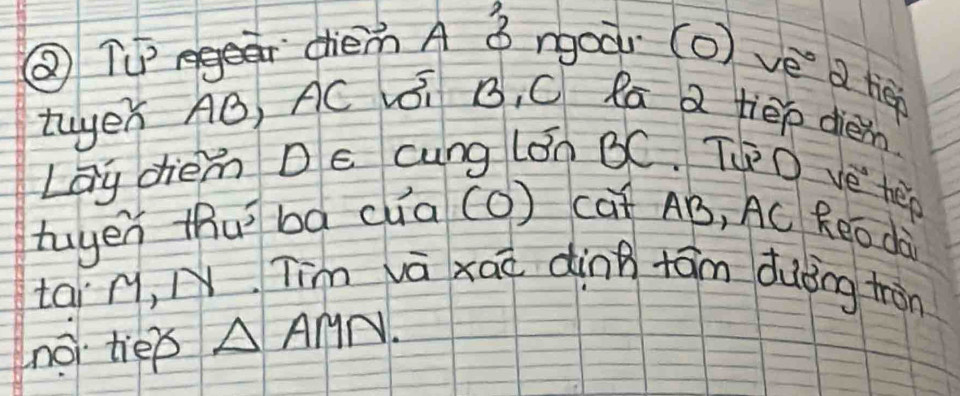 ② Từ điểm A ở ngoài (O) vẽ 2 tiếp
tuyến AB, AC với B, C là 2 tiếp điểm.
Lấy điểm D ∈ cung lớn BC. Từ D vẽ tiếp
tuyến thứ ba của (O) cắt AB, AC kéo dài
tại M, N. Tìm và xác định tâm đường tròn
nội tiếp △ AMN.